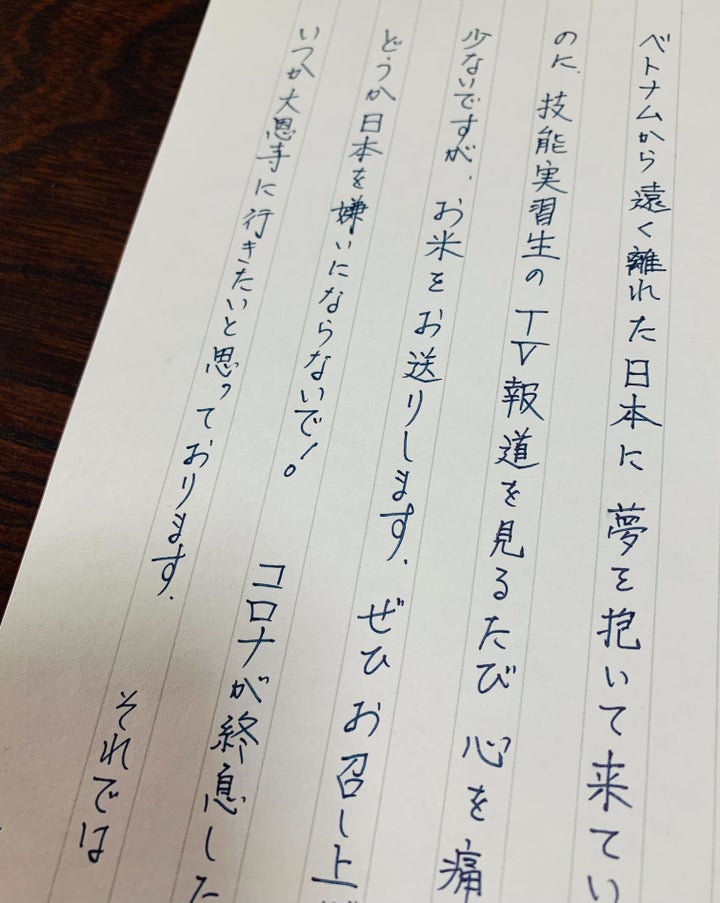 ベトナムから遠く離れた日本に 夢を抱いて来てい
のに、技能実習生のTV報道を見るたび 心を痛
少ないですが、お米をお送りします。ぜひ お召し上
どうか日本を嫌いにならないで!。 コロナが終息した
いつか大恩寺に行きたいと思っております。
それでは